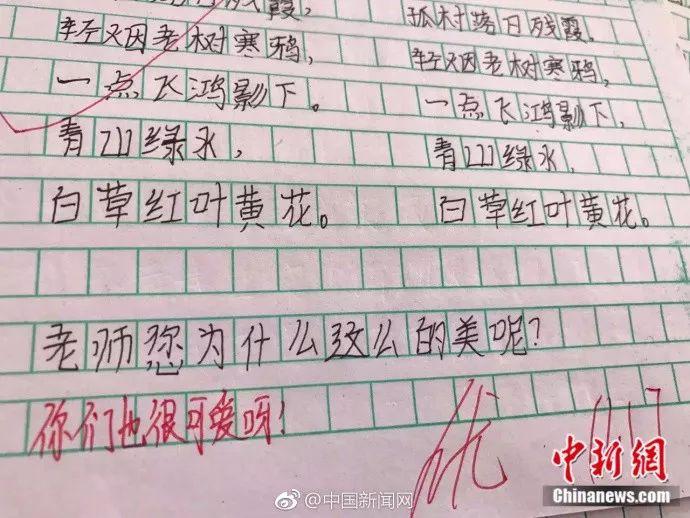 残霞,
轻烟老树寒鸦,
一点飞鸿影下。
青山绿水,
白草红叶黄花。
孤村落日残霞,
轻烟老树寒鸦,
一点飞鸿影下,
青山绿水,
白草红叶黄花。
老师您为什么这么的美呢?
你们也很可爱呀!
优
@中国新闻网
中新網
Chinanews.com